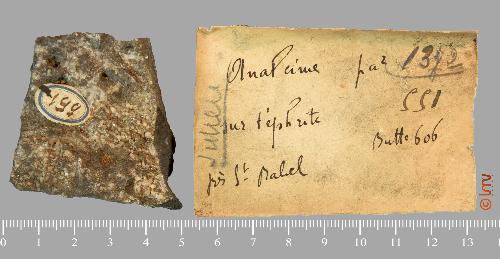 551
Analcime par 1373
551
sur téphrite
Butte 606
près St. Babel
0 1 2 3 4 5 6 7 8 9 10 11 12 13